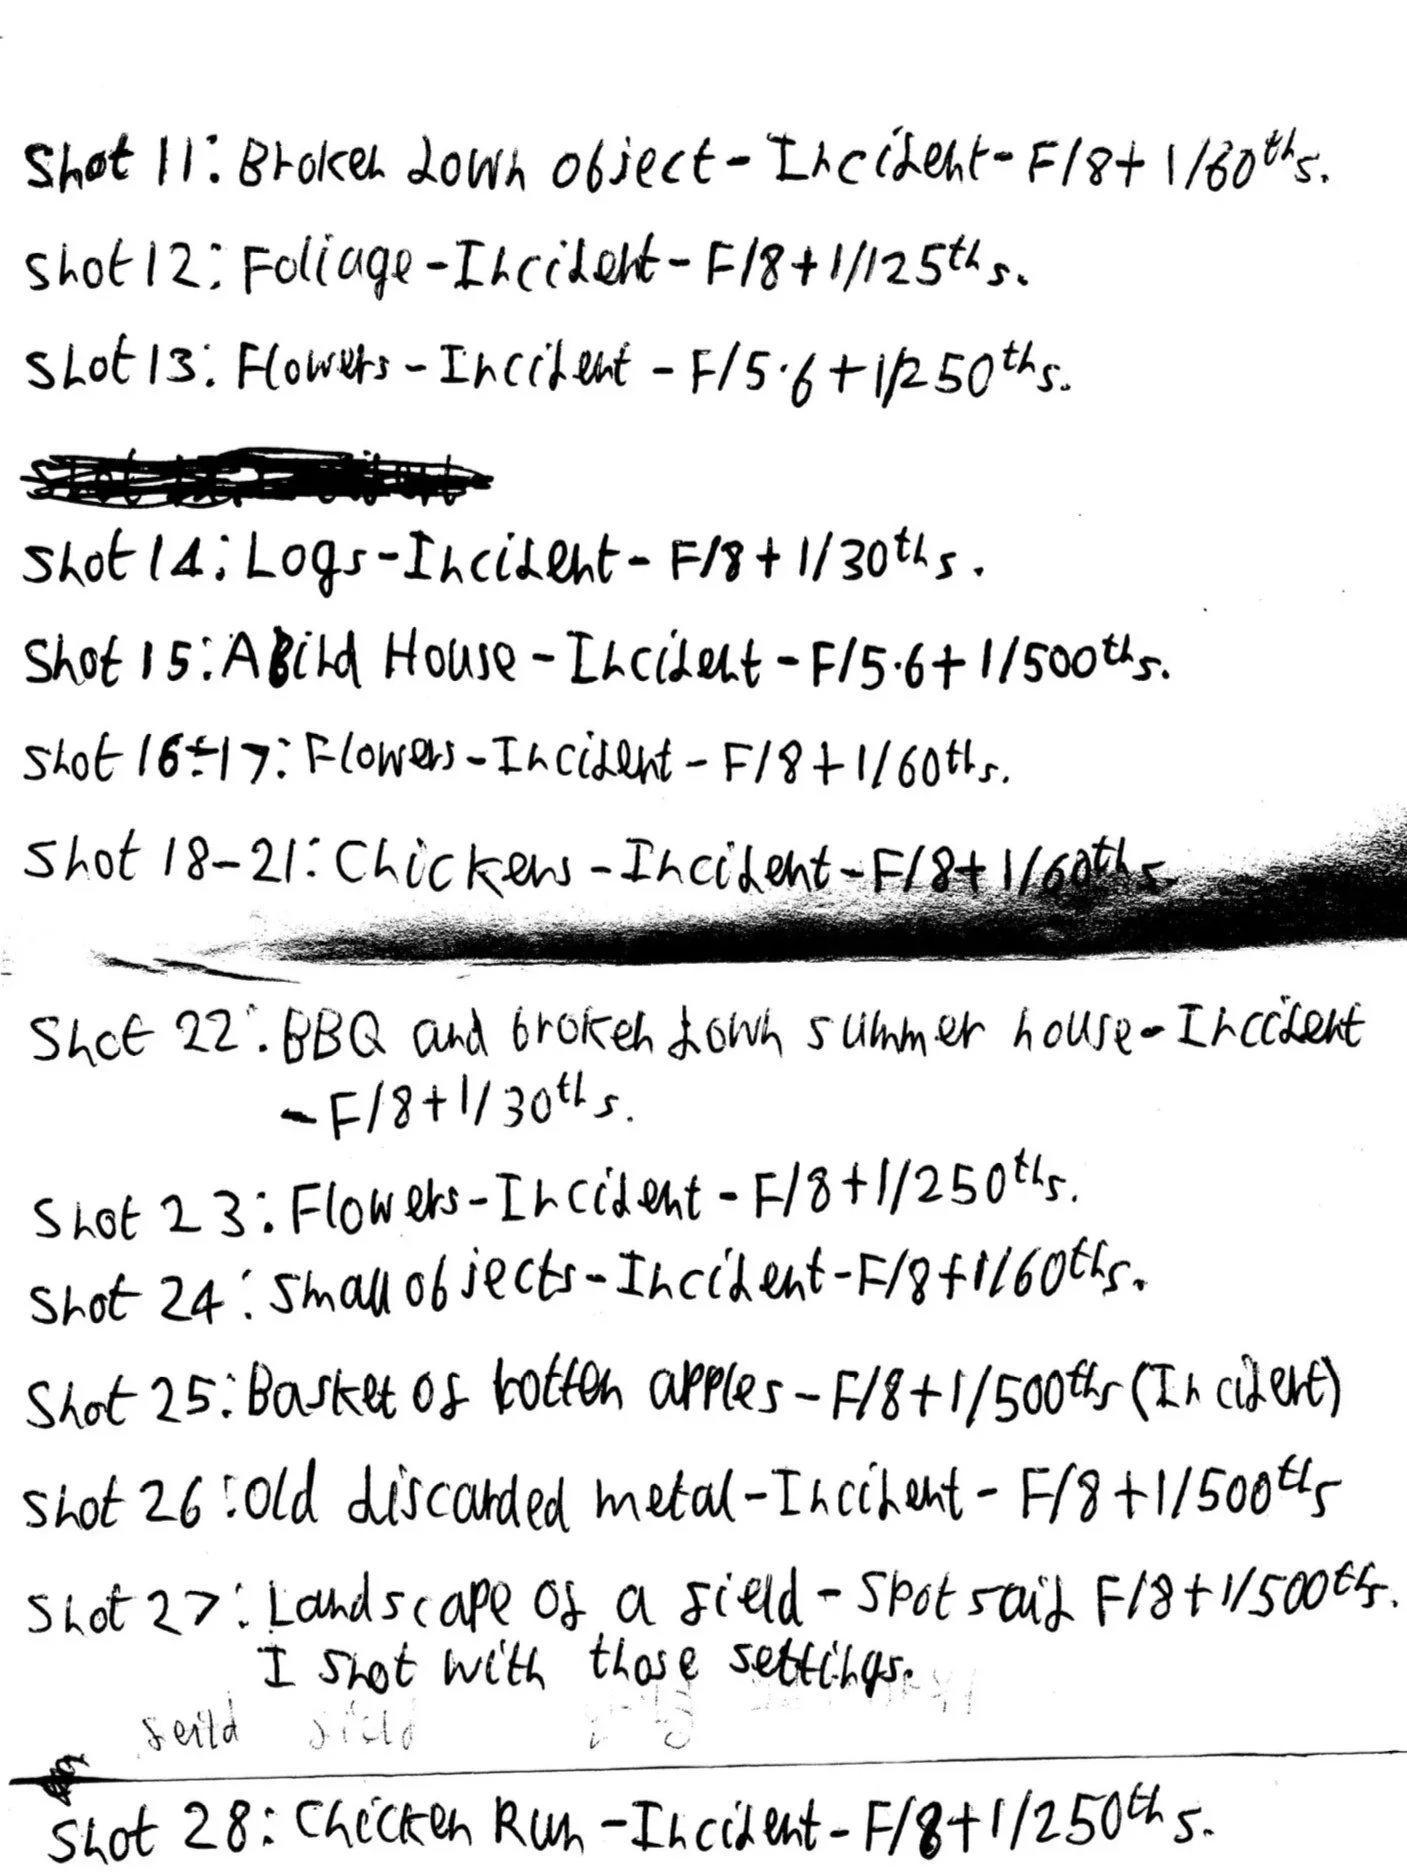 Shot 11: Broken down object - Incident - F/8 + 1/60ths.
Shot 12: Foliage - Incident - F/8 + 1/125ths.
Shot 13: Flowers - Incident - F/5.6 + 1/250ths.
Shot 14: Logs - Incident - F/8 + 1/30ths.
Shot 15: A Bird House - Incident - F/5.6 + 1/500ths.
Shot 16-17: Flowers - Incident - F/8 + 1/60ths.
Shot 18-21: Chickens - Incident - F/8 + 1/60ths.
Shot 22: BBQ and broken down summer house - Incident
- F/8 + 1/30ths.
Shot 23: Flowers - Incident - F/8 + 1/250ths.
Shot 24: Small objects - Incident - F/8 + 1/60ths.
Shot 25: Basket of rotten apples - F/8 + 1/500ths (Incident)
Shot 26: Old discarded metal - Incident - F/8 + 1/500ths
Shot 27: Landscape of a field - Spot said F/8 + 1/500ths.
I shot with those settings.
feild field
Shot 28: Chicken Run - Incident - F/8 + 1/250ths.